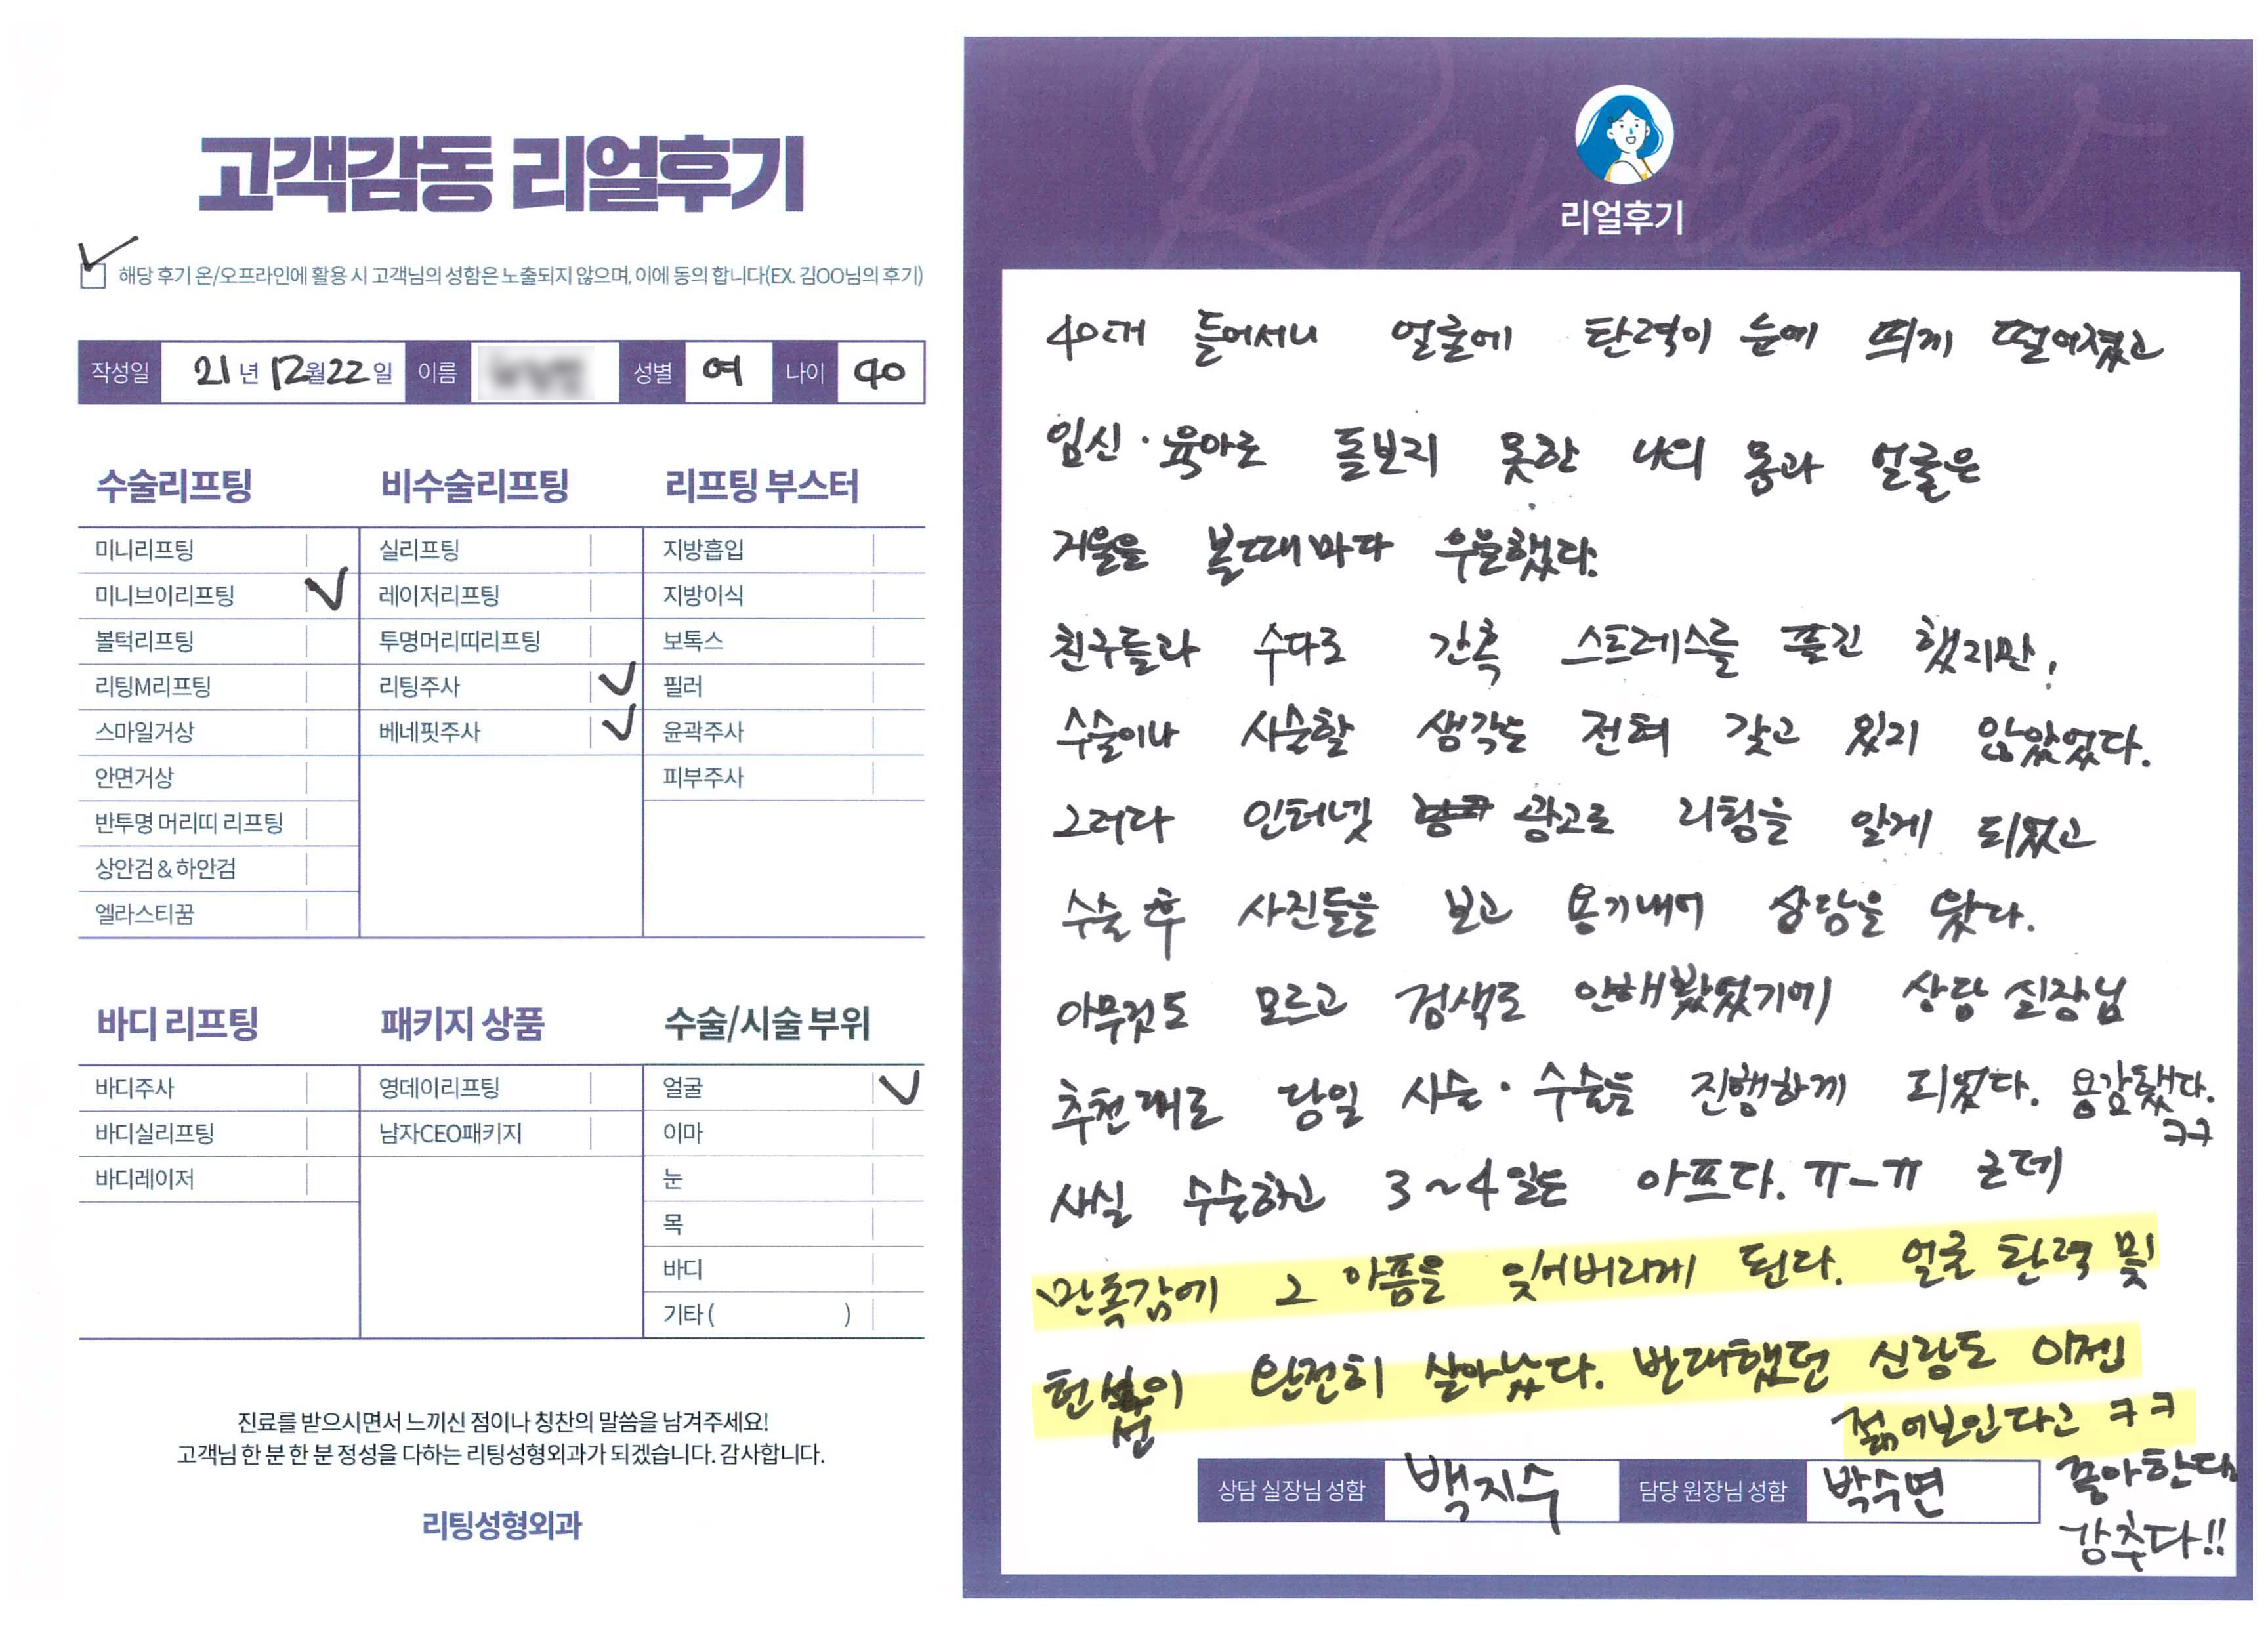 고객감동 리얼후기
해당 후기 온/오프라인에 활용 시 고객님의 성함은 노출되지 않으며, 이에 동의 합니다(EX. 김OO님의 후기)
작성일 21년 12월 22일 이름 성별 여 나이 40
수술리프팅 비수술리프팅 리프팅 부스터
미니리프팅 실리프팅 지방흡입
미니브이리프팅 레이저리프팅 지방이식
볼턱리프팅 투명머리띠리프팅 보톡스
리팅M리프팅 리팅주사 필러
스마일거상 베네핏주사 윤곽주사
안면거상 피부주사
반투명 머리띠 리프팅
상안검 & 하안검
엘라스티꿈
바디 리프팅 패키지 상품 수술/시술 부위
바디주사 영데이리프팅 얼굴
바디실리프팅 남자CEO패키지 이마
바디레이저 눈
목
바디
기타 ( )
진료를 받으시면서 느끼신 점이나 칭찬의 말씀을 남겨주세요!
고객님 한 분 한 분 정성을 다하는 리팅성형외과가 되겠습니다. 감사합니다.
리팅성형외과
Review
리얼후기
40대 들어서니 얼굴에 탄력이 눈에 띄게 떨어졌고
임신·육아로 돌보지 못한 나의 몸과 얼굴은
거울을 볼때마다 우울했다.
친구들과 수다로 간혹 스트레스를 풀긴 했지만,
수술이나 시술할 생각은 전혀 갖고 있지 않았었다.
그러다 인터넷 광고로 리팅을 알게 되었고
수술 후 사진들을 보고 용기내어 상담을 왔다.
아무것도 모르고 검색도 안해봤었기에 상담 실장님
추천대로 당일 시술·수술을 진행하게 되었다. 용감했다.
ㅋㅋ
사실 수술하고 3~4일은 아프다. ㅠ-ㅠ 근데
만족감에 그 아픔을 잊어버리게 된다. 얼굴 탄력 및
턴 선이 완전히 살아났다. 반대했던 신랑도 이젠
젊어보인다고 ㅋㅋ
좋아한다.
강추다!!
상담 실장님 성함 백지수 담당 원장님 성함 박수연